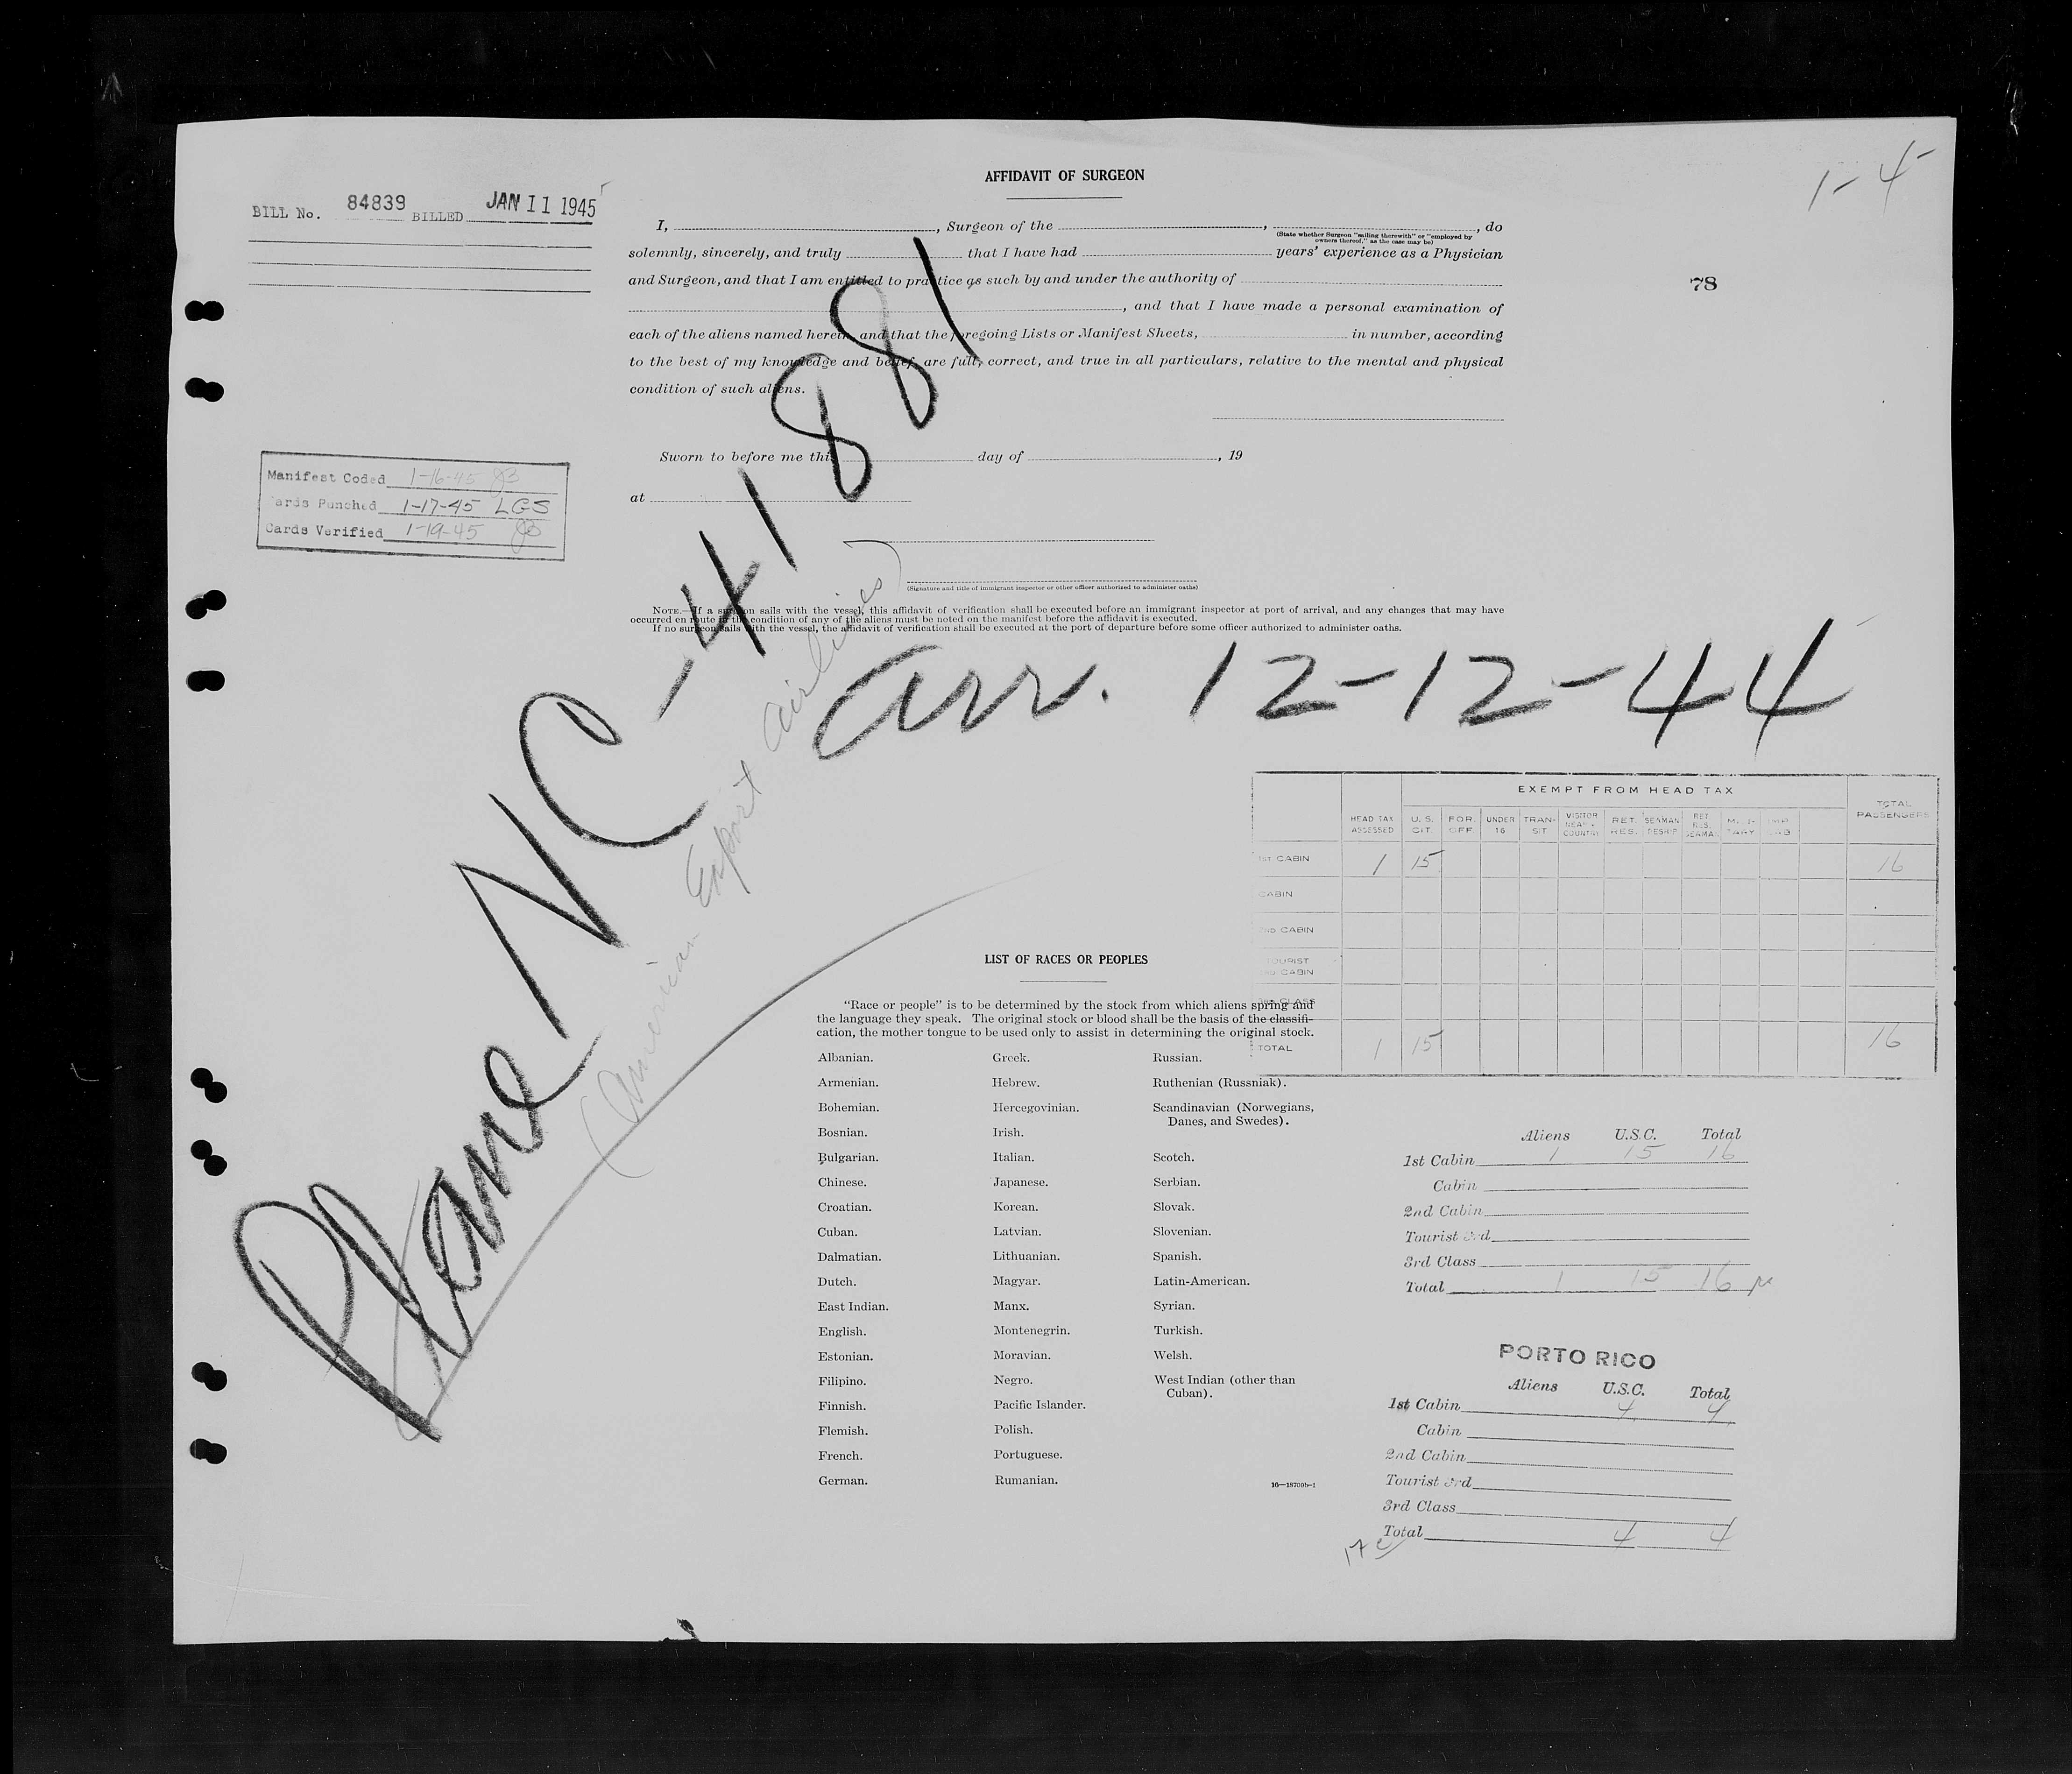 AFFIDAVIT OF SURGEON
1-4
BILL No. 84839 BILLED JAN 11 1945
I, , Surgeon of the , , do
(State whether Surgeon "sailing therewith" or "employed by
owners thereof," as the case may be)
solemnly, sincerely, and truly that I have had years' experience as a Physician
and Surgeon, and that I am entitled to practice as such by and under the authority of
78
, and that I have made a personal examination of
each of the aliens named herein, and that the foregoing Lists or Manifest Sheets, in number, according
to the best of my knowledge and belief, are full, correct, and true in all particulars, relative to the mental and physical
condition of such aliens.
Sworn to before me this day of , 19
at
Manifest Coded 1-16-45 JB
Cards Punched 1-17-45 LGS
Cards Verified 1-19-45 JB
(Signature and title of immigrant inspector or other officer authorized to administer oaths)
NOTE.—If a surgeon sails with the vessel, this affidavit of verification shall be executed before an immigrant inspector at port of arrival, and any changes that may have
occurred en route in the condition of any of the aliens must be noted on the manifest before the affidavit is executed.
If no surgeon sails with the vessel, the affidavit of verification shall be executed at the port of departure before some officer authorized to administer oaths.
Plane NC-41881
(American Export Airlines)
arr. 12-12-44
EXEMPT FROM HEAD TAX
HEAD TAX ASSESSED U. S. CIT. FOR. OFF. UNDER 16 TRAN-SIT VISITOR NEAR COUNTRY RET. RES. SEAMAN DESHIP RET. RES. SEAMAN MILI-TARY TOTAL PASSENGERS
1st CABIN 1 15 16
CABIN
2ND CABIN
TOURIST
3RD CABIN
3RD CLASS
TOTAL 1 15 16
LIST OF RACES OR PEOPLES
"Race or people" is to be determined by the stock from which aliens spring and
the language they speak. The original stock or blood shall be the basis of the classifi-
cation, the mother tongue to be used only to assist in determining the original stock.
Albanian.
Armenian.
Bohemian.
Bosnian.
Bulgarian.
Chinese.
Croatian.
Cuban.
Dalmatian.
Dutch.
East Indian.
English.
Estonian.
Filipino.
Finnish.
Flemish.
French.
German.
Greek.
Hebrew.
Hercegovinian.
Irish.
Italian.
Japanese.
Korean.
Latvian.
Lithuanian.
Magyar.
Manx.
Montenegrin.
Moravian.
Negro.
Pacific Islander.
Polish.
Portuguese.
Rumanian.
Russian.
Ruthenian (Russniak).
Scandinavian (Norwegians,
Danes, and Swedes).
Scotch.
Serbian.
Slovak.
Slovenian.
Spanish.
Latin-American.
Syrian.
Turkish.
Welsh.
West Indian (other than
Cuban).
16—18700b-1
Aliens U.S.C. Total
1st Cabin 1 15 16
Cabin
2nd Cabin
Tourist 3rd
3rd Class
Total 1 15 16
PORTO RICO
Aliens U.S.C. Total
1st Cabin 4 4
Cabin
2nd Cabin
Tourist 3rd
3rd Class
Total 4 4